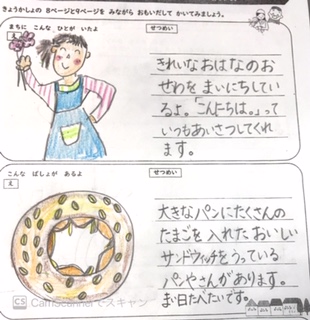 きょうかしょの 8ページと9ページを みながら おもいだして かいてみましょう。
まちに こんな ひとが いたよ
え
せつめい
きれいなおはなのお
せわを まいにちしてい
るよ。「こんにちは。」って
いつもあいさつしてくれ
ます。
こんな ばしょが あるよ
え
せつめい
大きなパンにたくさんの
たまごを 入れた おいしい
サンドウィッチをうっている
パンやさんがあります。
まい日たべたいです。
CS CamScannerでスキャン